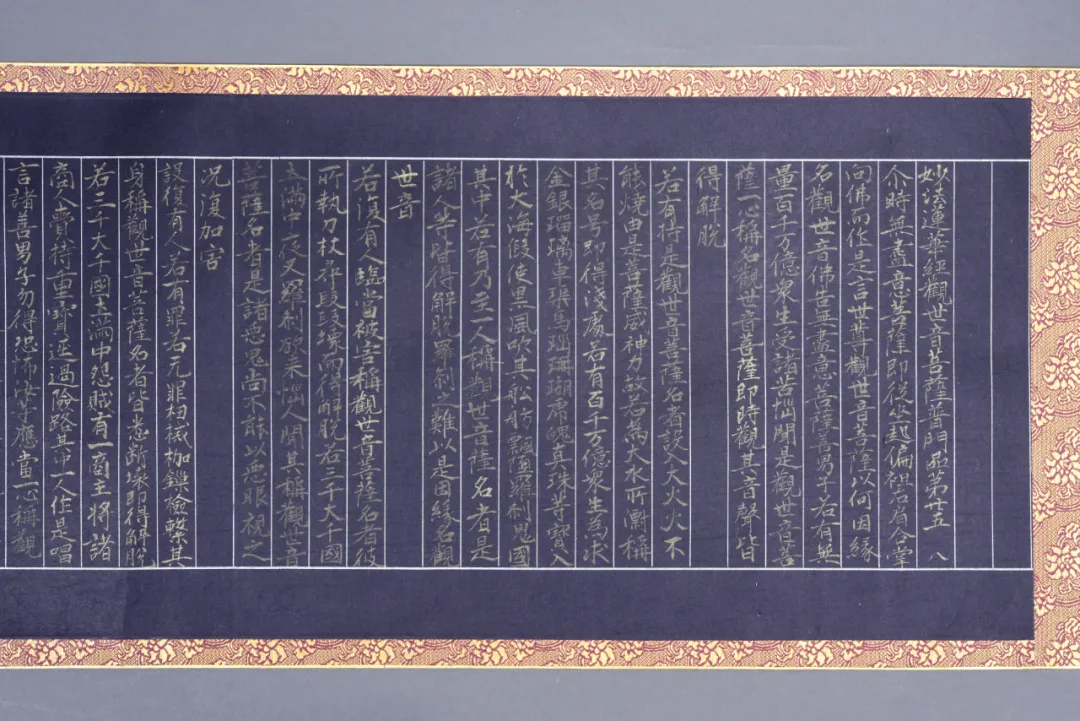 妙法蓮華經觀世音菩薩普門品第廿五 八
尒時無盡意菩薩即從坐起偏袒右肩合掌
向佛而作是言世尊觀世音菩薩以何因緣
名觀世音佛告無盡意菩薩善男子若有無
量百千万億衆生受諸苦惱聞是觀世音菩
薩一心稱名觀世音菩薩即時觀其音聲皆
得解脫
若有持是觀世音菩薩名者設入大火火不
能燒由是菩薩威神力故若爲大水所漂稱
其名号即得淺處若有百千万億衆生爲求
金銀瑠璃車璖馬瑙珊瑚虎魄真珠等寶入
於大海假使黑風吹其舩舫飄墮羅刹鬼國
其中若有乃至一人稱觀世音薩名者是
諸人等皆得解脫羅刹之難以是因緣名觀
世音
若復有人臨當被害稱觀世音菩薩名者彼
所執刀杖尋段段壞而得解脫若三千大千國
土滿中夜叉羅刹欲来惱人聞其稱觀世音
菩薩名者是諸惡鬼尚不能以惡眼視之
況復加害
設復有人若有罪若无罪杻械枷鏁檢繫其
身稱觀世音菩薩名者皆悉断壞即得解脫
若三千大千國土滿中怨賊有一商主將諸
商人賷持重寶逕過險路其中一人作是唱
言諸善男子勿得恐怖汝等應當一心稱觀